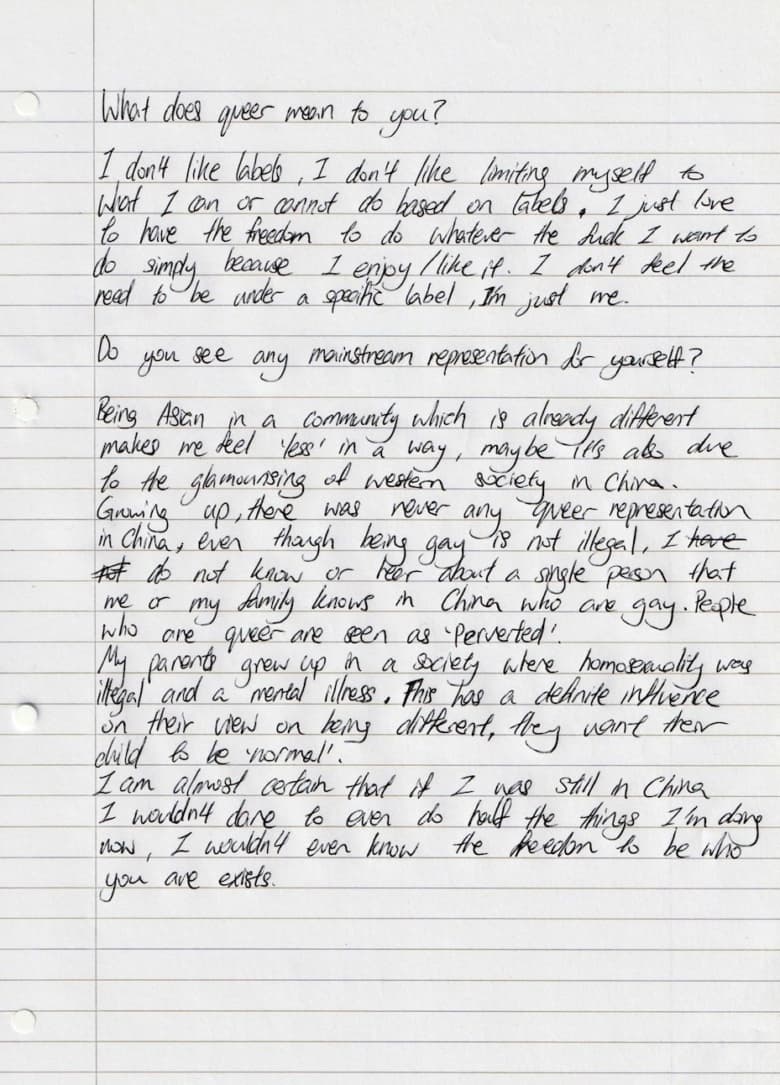 What does queer mean to you?
I don't like labels, I don't like limiting myself to
what I can or cannot do based on labels. I just love
to have the freedom to do whatever the fuck I want to
do simply because I enjoy/like it. I don't feel the
need to be under a specific label, I'm just me.
Do you see any mainstream representation for yourself?
Being Asian in a community which is already different
makes me feel 'less' in a way, maybe it's also due
to the glamourising of western society in China.
Growing up, there was never any queer representation
in China, even though being gay is not illegal, I have
not do not know or hear about a single person that
me or my family knows in China who are gay. People
who are queer are seen as 'perverted'.
My parents grew up in a society where homosexuality was
illegal and a mental illness. This has a definite influence
on their view on being different, they want their
child to be 'normal'.
I am almost certain that if I was still in China
I wouldn't dare to even do half the things I'm doing
now, I wouldn't even know the freedom to be who
you are exists.